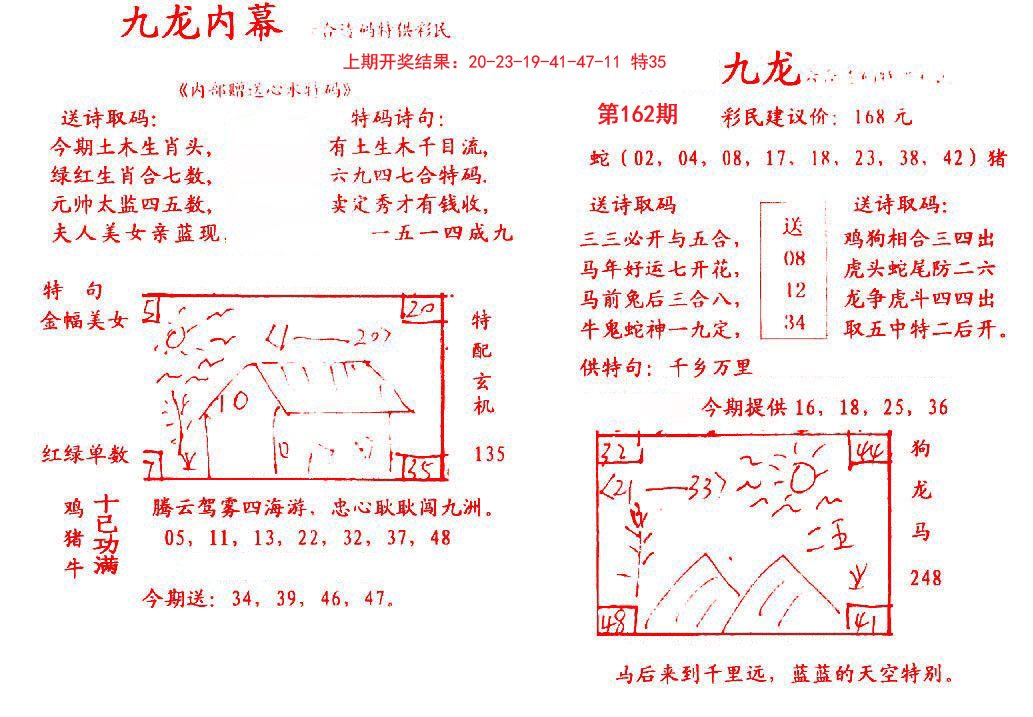 九龙内幕
上期开奖结果：20-23-19-41-47-11 特35
《内部赠送心水特码》
送诗取码：
今期土木生肖头，
绿红生肖合七数，
元帅太监四五数，
夫人美女亲蓝现，
特码诗句：
有土生木千目流，
六九四七合特码.
卖定秀才有钱收，
一五一四成九
特 句
金幅美女
红绿单数
5
20
<1——20>
10
0
7
35
特配玄机
135
鸡猪牛
十已功满
腾云驾雾四海游，忠心耿耿闯九洲。
05，11，13，22，32，37，48
今期送：34，39，46，47。
九龙
第162期
彩民建议价：168元
蛇（02，04，08，17，18，23，38，42）猪
送诗取码
三三必开与五合，
马年好运七开花，
马前兔后三合八，
牛鬼蛇神一九定，
送
08
12
34
送诗取码：
鸡狗相合三四出
虎头蛇尾防二六
龙争虎斗四四出
取五中特二后开。
供特句：千乡万里
今期提供16，18，25，36
32
44
<21——33>
48
41
狗龙马
248
马后来到千里远，蓝蓝的天空特别。